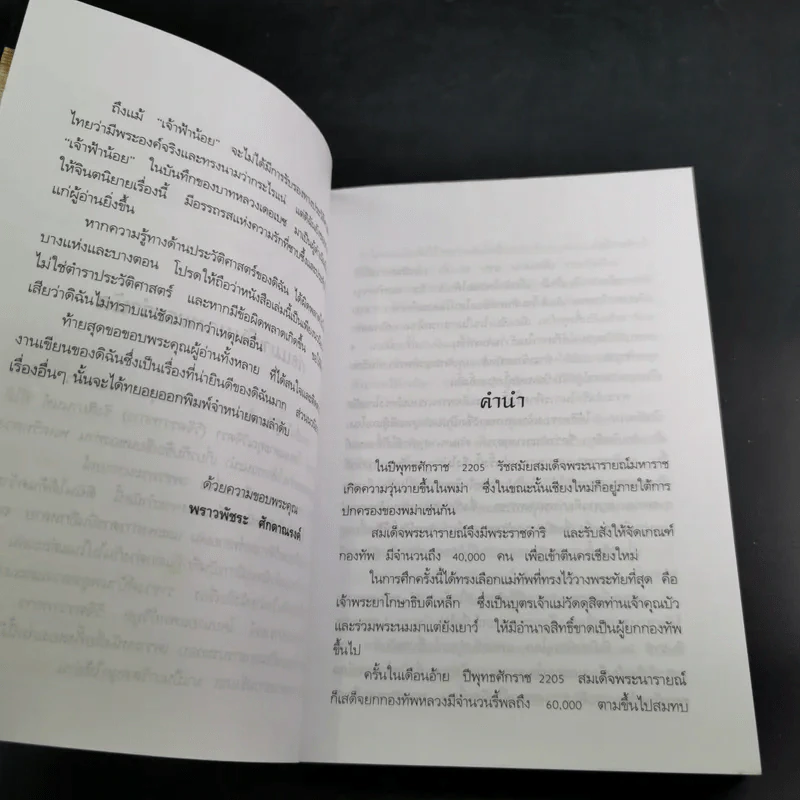 ถึงแม้ "เจ้าฟ้าน้อย" จะไม่ได้มีการรับรองทาง
ไทยว่ามีพระองค์จริงและทรงนามว่ากระไรแน่ แต่ดิฉัน
"เจ้าฟ้าน้อย" ในบันทึกของบาทหลวงเดอแบซ มาเป็น
ให้จินตนิยายเรื่องนี้ มีอรรถรสแห่งความรักที่ซาบซึ้งและ
แก่ผู้อ่านยิ่งขึ้น
หากความรู้ทางด้านประวัติศาสตร์ของดิฉัน ได้ผิดพลาด
บางแห่งและบางตอน โปรดให้ถือว่าหนังสือเล่มนี้เป็นเพียง
ไม่ใช่ตำราประวัติศาสตร์ และหากมีข้อผิดพลาดเกิดขึ้น
เสียว่าดิฉันไม่ทราบแน่ชัดมากกว่าเหตุผลอื่น
ท้ายสุดขอขอบพระคุณผู้อ่านทั้งหลาย ที่ได้สนใจและติดตาม
งานเขียนของดิฉันซึ่งเป็นเรื่องที่น่ายินดีของดิฉันมาก
เรื่องอื่นๆ นั้นจะได้ทยอยออกพิมพ์จำหน่ายตามลำดับ
ด้วยความขอบพระคุณ
พราวพัชระ ศักดาณรงค์
คำนำ
ในปีพุทธศักราช 2205 รัชสมัยสมเด็จพระนารายณ์มหาราช
เกิดความวุ่นวายขึ้นในพม่า ซึ่งในขณะนั้นเชียงใหม่ก็อยู่ภายใต้การ
ปกครองของพม่าเช่นกัน
สมเด็จพระนารายณ์จึงมีพระราชดำริ และรับสั่งให้จัดเกณฑ์
กองทัพ มีจำนวนถึง 40,000 คน เพื่อเข้าตีนครเชียงใหม่
ในการศึกครั้งนี้ได้ทรงเลือกแม่ทัพที่ทรงไว้วางพระทัยที่สุด คือ
เจ้าพระยาโกษาธิบดีเหล็ก ซึ่งเป็นบุตรเจ้าแม่วัดดุสิตท่านเจ้าคุณบัว
และร่วมพระนมมาแต่ยังเยาว์ ให้มีอำนาจสิทธิ์ขาดเป็นผู้ยกกองทัพ
ขึ้นไป
ครั้นในเดือนอ้าย ปีพุทธศักราช 2205 สมเด็จพระนารายณ์
ก็เสด็จยกกองทัพหลวงมีจำนวนรี้พลถึง 60,000 ตามขึ้นไปสมทบ